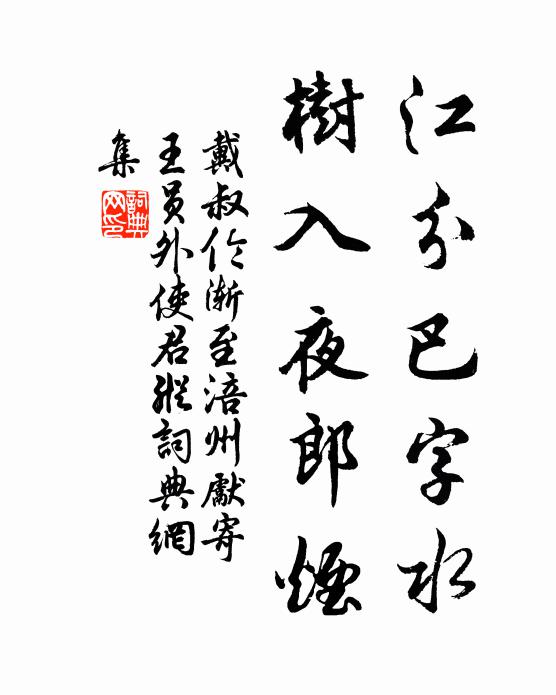 江分巴字水
樹入夜郎煙
戴叔伦漸至涪州獻寄
王員外使君縱詞典網
集
詞典网印